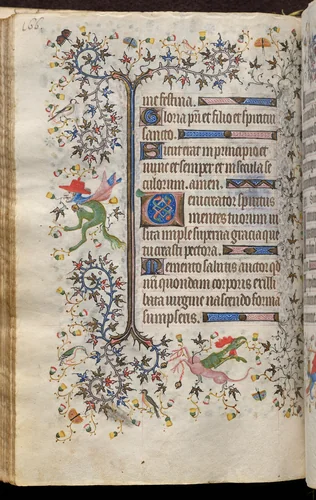 me festina.
Gloria pri et filio et spiritui
sancto.
Sicut erat in principio et
nunc et semper et in secula se
culorum. amen.
Veni creator spiritus
mentes tuorum ui
sita imple superna gracia que
tu creasti pectora.
Memento salutis auctor qd
nri quondam corporis ex illi
bata uirgine nascendo forma
sumpseris